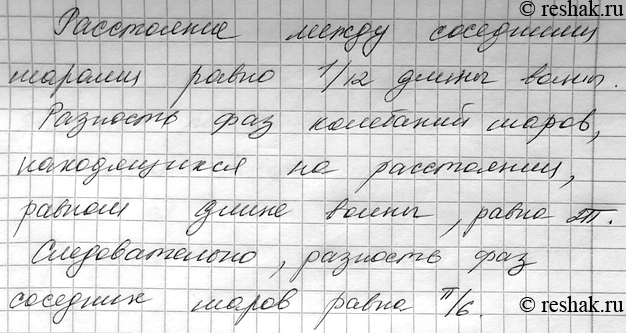 reshak.ru
Расстояние между соседними
шарами равно 1/12 длины волны.
Разность фаз колебаний шаров,
находящихся на расстоянии,
равном длине волны, равна 2π.
Следовательно, разность фаз
соседних шаров равна π/6.
reshak.ru